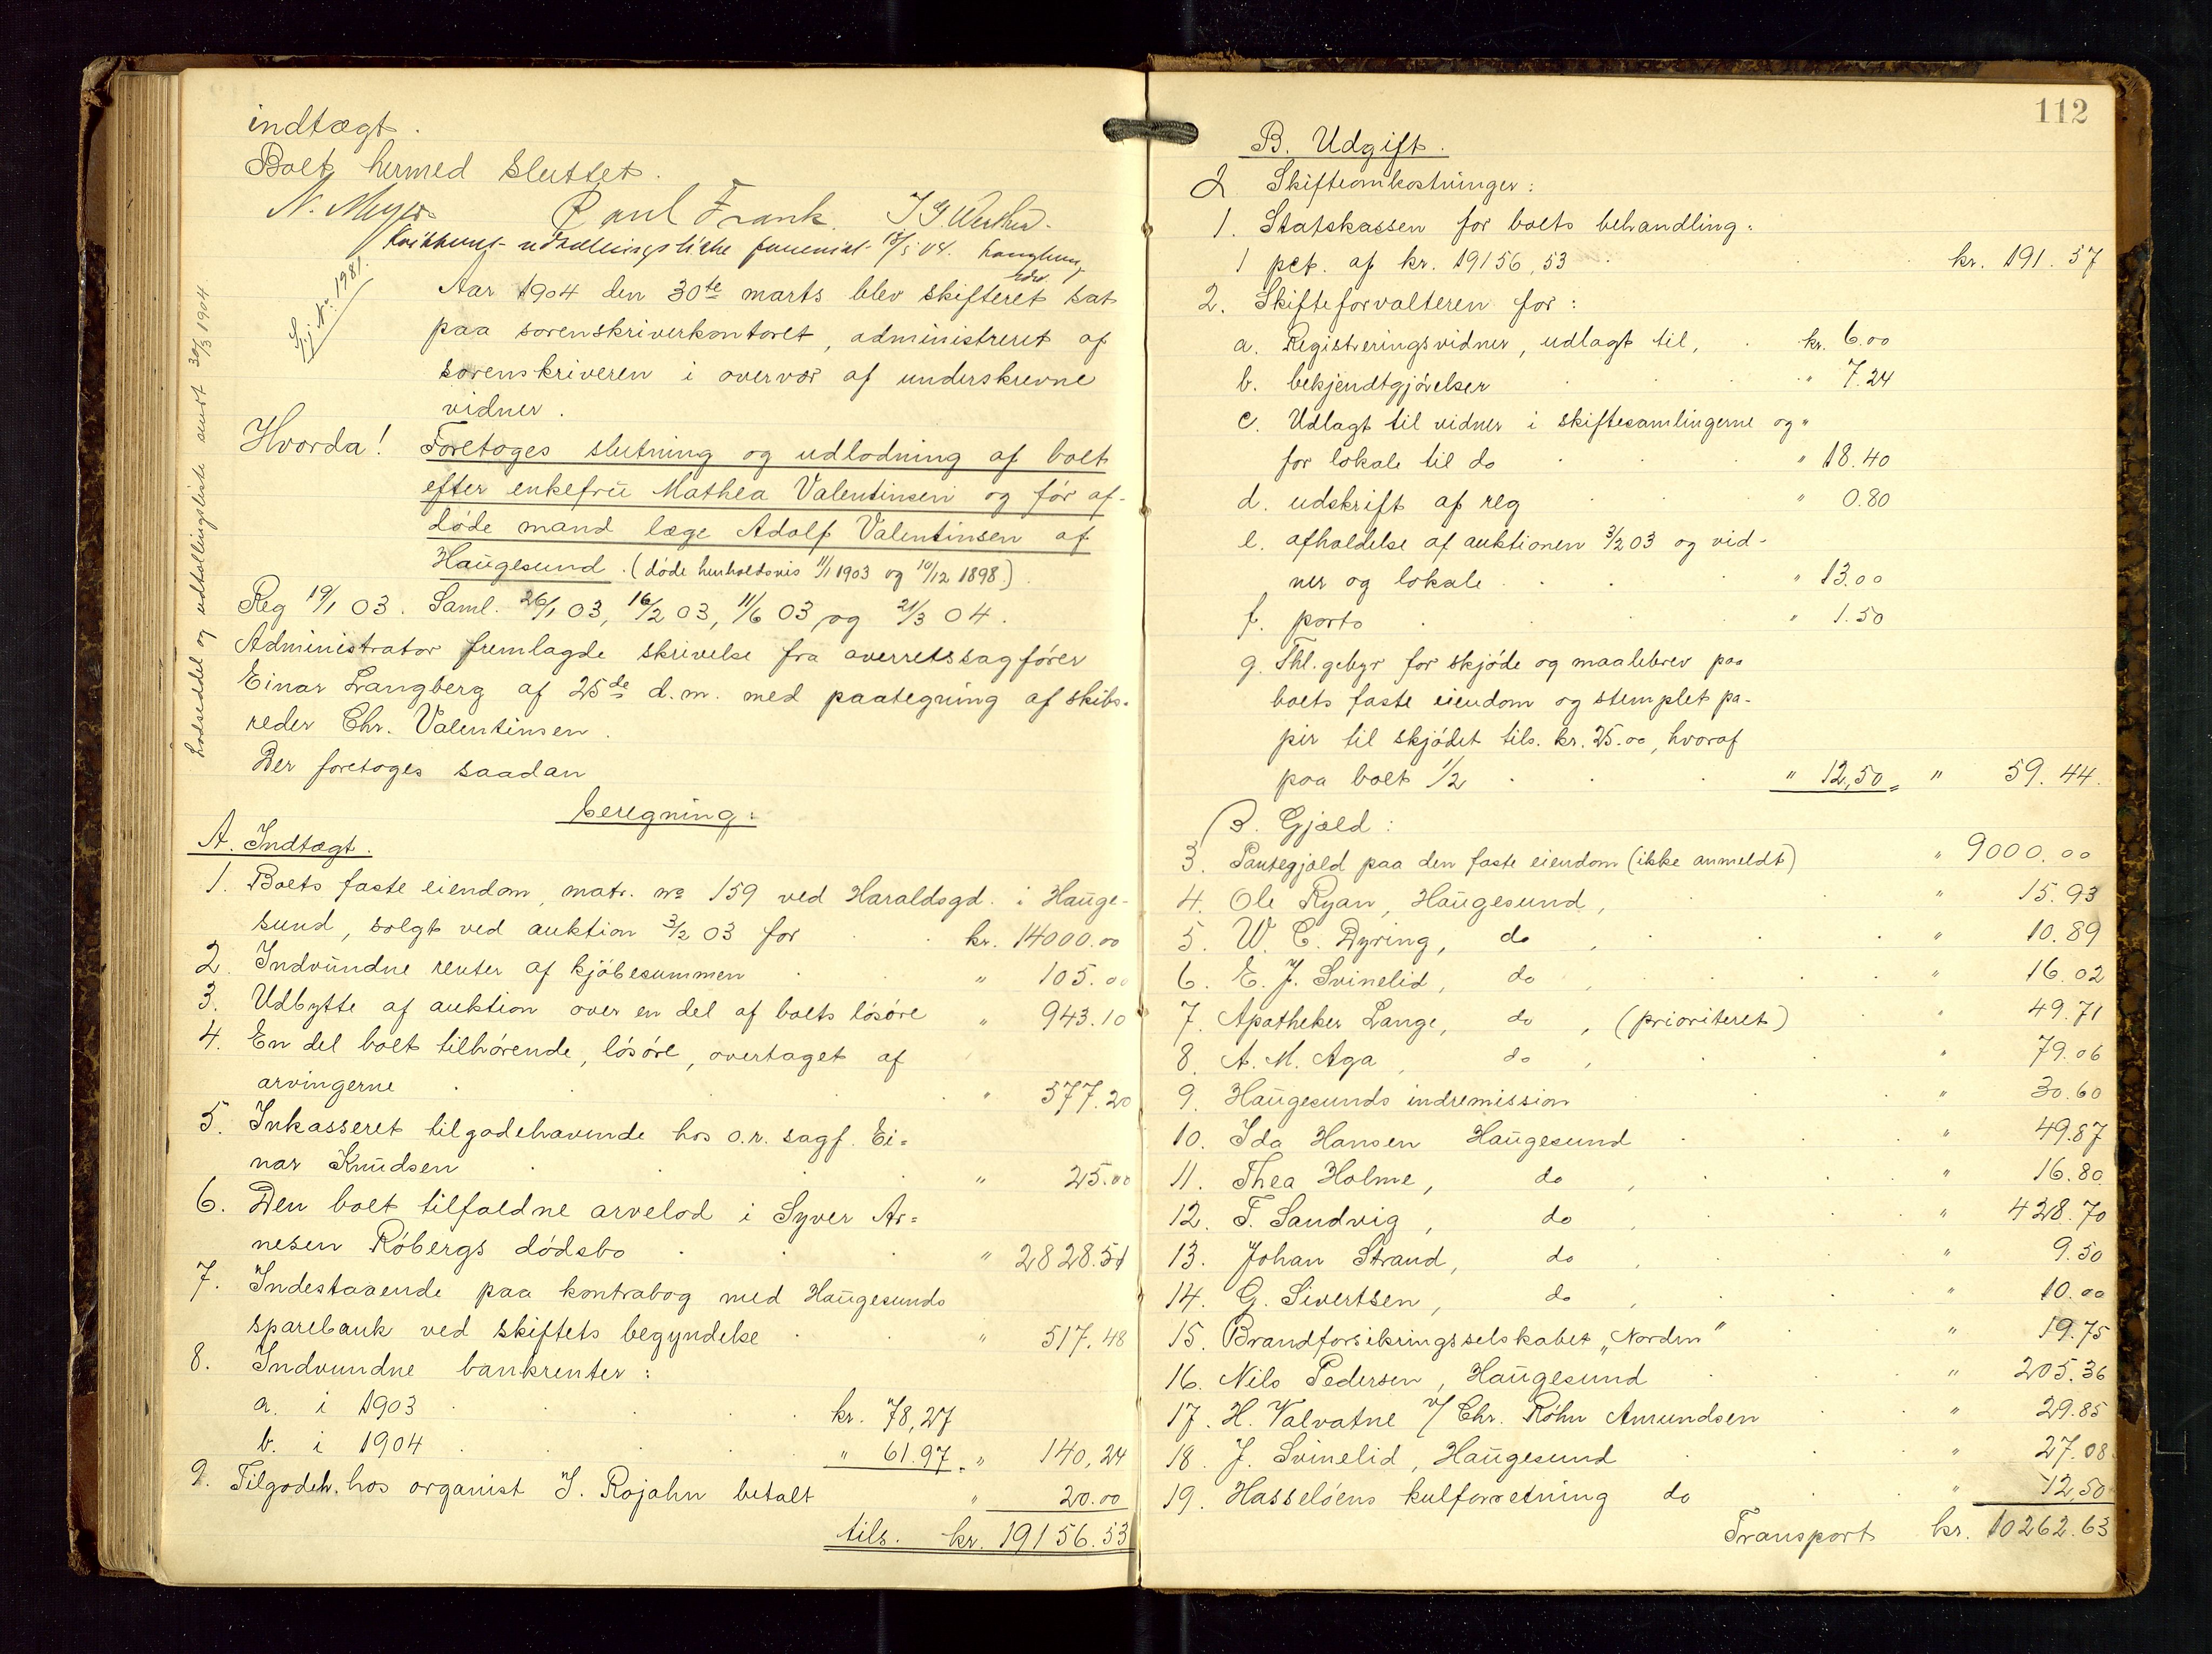 indtægt.
Boet hermed sluttet.
N. Meyer Paul Frank.
Aar 1904 den 30te marts blev skifteret sat
paa sorenskriverkontoret, administreret af
sorenskriveren i overvær af underskrevne
vidner.
Hvorda! Foretoges slutning og udlodning af boet
efter enkefrü Mathea Valentinsen og før af-
døde mand læge Adolf Valentinsen af
Haügesund. (døde henholdsvis 11/1 1903 og 10/12 1898.).
Reg 19/1 03. Saml. 26/1 03, 16/2 03, 11/6 03 og 21/3 04.
Administrator fremlagde skrivelse fra overretssagfører
Einar Langberg af 25de d.m. med paategning af skibs-
reder Chr. Valentinsen.
Der foretoges saadan
beregning:
A. Indtægt.
1. Boets faste eiendom, matr. no 159 ved Haraldsgd. i Haüge-
sund, solgt ved auktion 3/2 03 for kr. 14000.00
2. Indvündne renter af kjøbesummen " 105.00
3. Udbytte af auktion over en del af boets løsøre " 943.10
4. En del boet tilhørende, løsøre, overtaget af
arvingerne " 577.20
5. Inkasseret tilgodehavende hos o.r. sagf. Ei-
nar Knüdsen " 25.00
6. Den boet tilfaldne arvelod i Syver Ar-
nesen Røbergs dødsbo " 2828.51
7. Indestaaende paa kontrabog med Haügesunds
sparebank ved skiftets begyndelse " 517.48
8. Indvundne bankrenter:
a. i 1903 kr. 78,27
b. i 1904 " 61.97 " 140,24
9. Tilgodeh. hos organist J. Rojahn betalt " 20.00
tils. kr. 19156.53
Lodseddel og udtællingsliste sendt 30/3 1904
Sj. No. 1981.
112
B. Udgift.
Skifteomkostninger:
1. Statskassen for boets behandling:
1 pct. af kr. 19156,53 kr. 191.57
2. Skifteforvalteren for:
a. Registreringsvidner, udlagt til, kr. 6.00
b. bekjendtgjørelser " 7.24
c. Udlagt til vidner i skiftesamlingerne og "
for lokale til do " 18.40
d. udskrift af reg " 0.80
e. afholdelse af auktionen 3/2 03 og vid-
ner og lokale " 13.00
f. porto " 1.50
g. Thl. gebyr for skjøde og maalebrev paa
boets faste eiendom og stemplet pa-
pir til skjødet tils. kr. 25.00, hvoraf
paa boet 1/2 " 12,50 " 59.44.
B. Gjæld:
3. Pantegjæld paa den faste eiendom (ikke anmeldt) " 9000.00
4. Ole Ryan, Haügesund, " 15.93
5. W. C. Dyring, do, " 10.89
6. E. J. Svinelid, do, " 16.02
7. Apotheker Lange, do, (prioriteret) " 49.71
8. A. M. Aga, do, " 79.06
9. Haügesunds indremission " 30.60
10. Ida Hansen Haügesund " 49.87
11. Thea Holme, do, " 16.80
12. T. Sandvig, do, " 428.70
13. Johan Strand, do, " 9.50
14. G. Sivertsen, do, " 10.00
15. Brandforsikringsselskabet „Norden" " 19.75
16. Nils Pedersen, Haügesund " 205.36
17. H. Valvatne v/ Chr. Røhn Amundsen " 29.85
18. J. Svinelid, Haügesund " 27.08
19. Hasseløens kulforretning do " 12,50
Transport kr. 10262.63